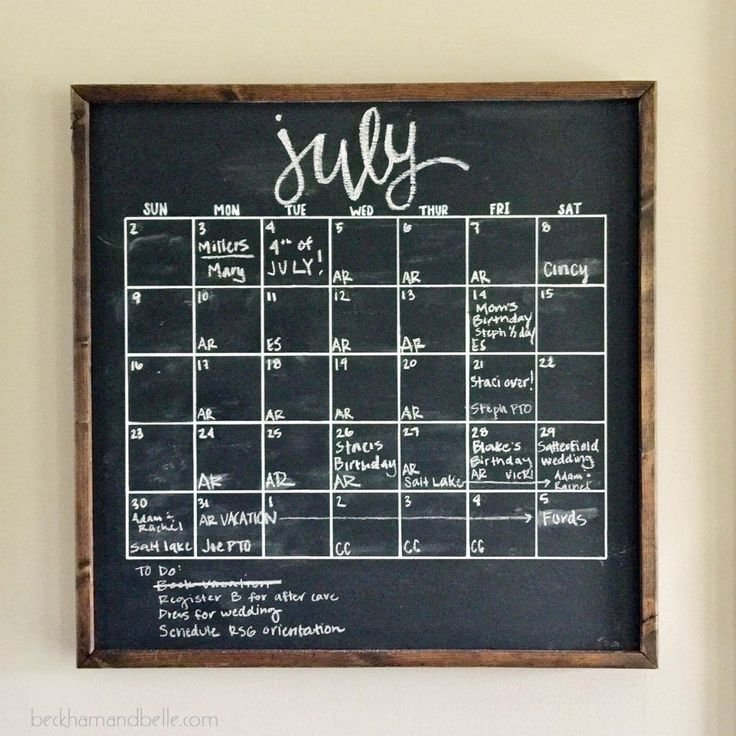 july
SUN MON TUE WED THUR FRI SAT
2 3 4 5 6 7 8
Millers
Mary
4th of
JULY!
AR AR AR
Cincy
9 10 11 12 13 14 15
Mom's
Birthday
Steph 1/2 day
AR ES AR AR ES
16 17 18 19 20 21 22
Staci over!
AR AR AR AR Steph PTO
23 24 25 26 27 28 29
Stacis
Birthday
Blake's
Birthday
Satterfield
wedding
AR AR AR AR AR Vicki
Salt Lake
Adam &
Rachel
30 31 1 2 3 4 5
Adam &
Rachel
AR VACATION
Fords
Salt lake Joe PTO CC CC CC
TO DO:
Book vacation
Register B for after care
Dress for wedding
Schedule RSG orientation
beckhamandbelle.com